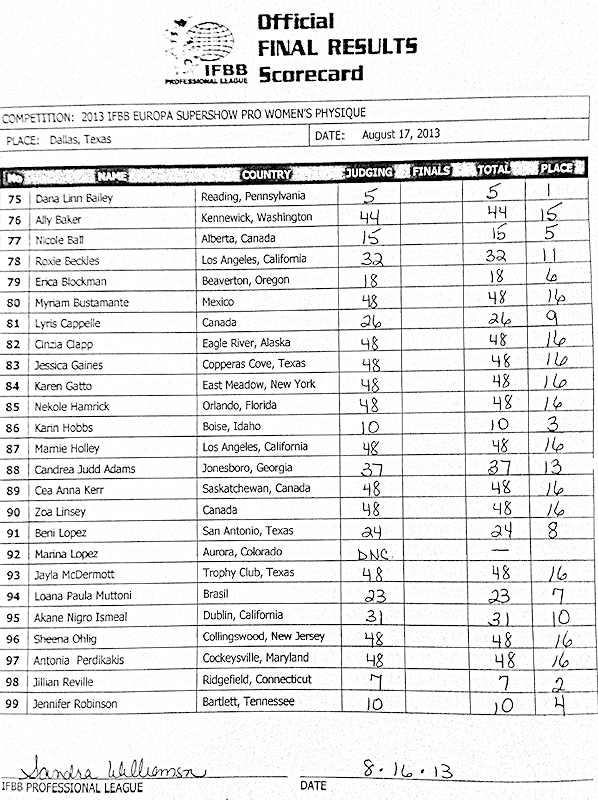 Official
FINAL RESULTS
Scorecard
IFBB
PROFESSIONAL LEAGUE
COMPETITION: 2013 IFBB EUROPA SUPERSHOW PRO WOMEN'S PHYSIQUE
PLACE: Dallas, Texas DATE: August 17, 2013
No NAME COUNTRY JUDGING FINALS TOTAL PLACE
75 Dana Linn Bailey Reading, Pennsylvania 5 5 1
76 Ally Baker Kennewick, Washington 44 44 15
77 Nicole Ball Alberta, Canada 15 15 5
78 Roxie Beckles Los Angeles, California 32 32 11
79 Erica Blockman Beaverton, Oregon 18 18 6
80 Myriam Bustamante Mexico 48 48 16
81 Lyris Cappelle Canada 26 26 9
82 Cinzia Clapp Eagle River, Alaska 48 48 16
83 Jessica Gaines Copperas Cove, Texas 48 48 16
84 Karen Gatto East Meadow, New York 48 48 16
85 Nekole Hamrick Orlando, Florida 48 48 16
86 Karin Hobbs Boise, Idaho 10 10 3
87 Mamie Holley Los Angeles, California 48 48 16
88 Candrea Judd Adams Jonesboro, Georgia 37 37 13
89 Cea Anna Kerr Saskatchewan, Canada 48 48 16
90 Zoa Linsey Canada 48 48 16
91 Beni Lopez San Antonio, Texas 24 24 8
92 Marina Lopez Aurora, Colorado DNC. —
93 Jayla McDermott Trophy Club, Texas 48 48 16
94 Loana Paula Muttoni Brasil 23 23 7
95 Akane Nigro Ismeal Dublin, California 31 31 10
96 Sheena Ohlig Collingswood, New Jersey 48 48 16
97 Antonia Perdikakis Cockeysville, Maryland 48 48 16
98 Jillian Reville Ridgefield, Connecticut 7 7 2
99 Jennifer Robinson Bartlett, Tennessee 10 10 4
Sandra Williamson 8·16·13
IFBB PROFESSIONAL LEAGUE DATE